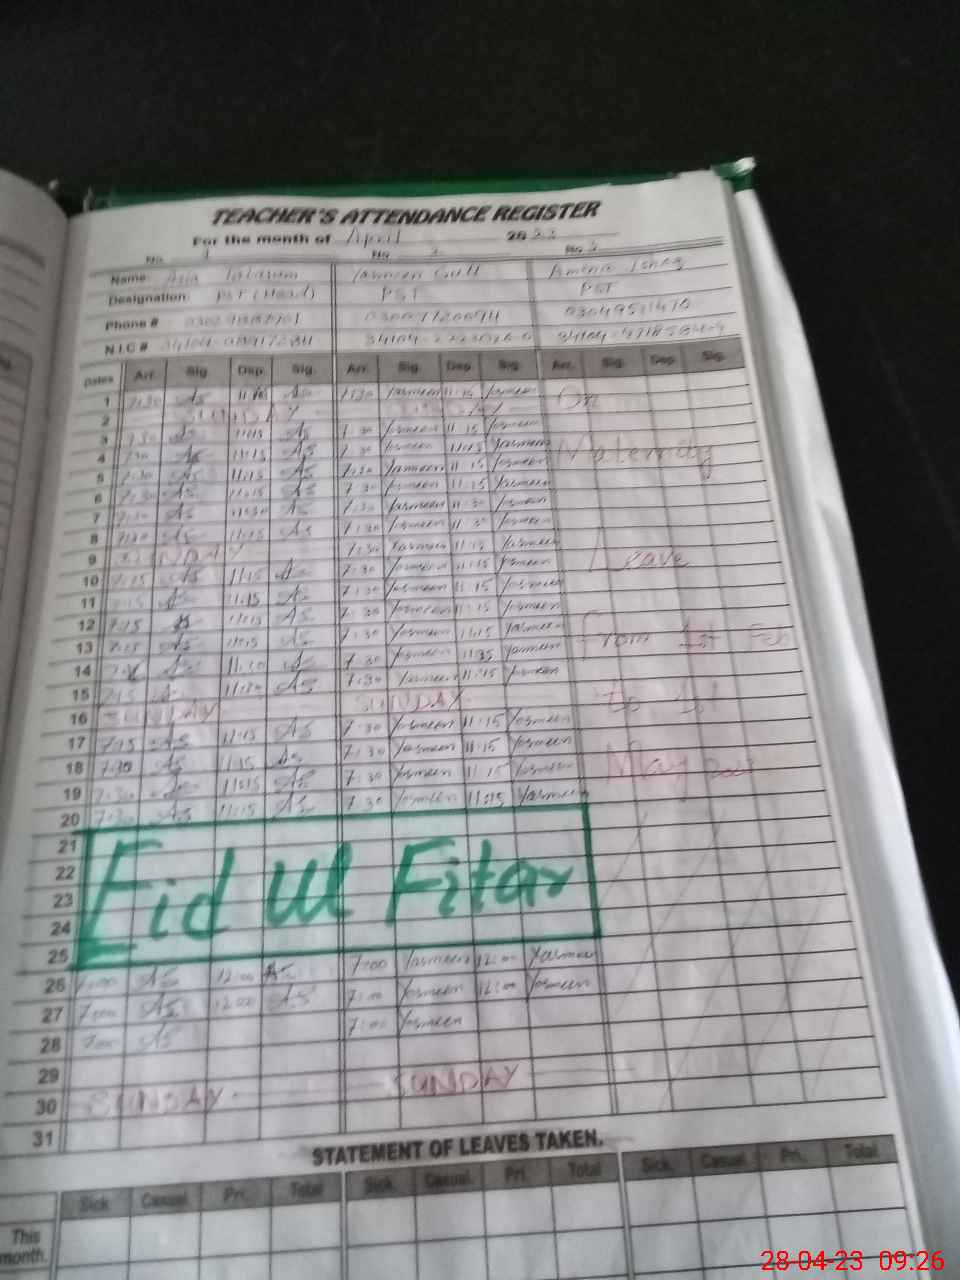 TEACHER'S ATTENDANCE REGISTER
For the month of April 2023
No. 1 No 2 No 3
Name: Asia Tabasum Yasmeen Gull
Designation: PST (Head) PST PST
Phone # 03007120094
N.I.C #
Dates Arr. Sig. Dep. Sig. Arr. Sig. Dep. Sig. Arr. Sig. Dep. Sig.
1 7:30 AS AS 7:30 Yasmeen 11:15 Yasmeen On
2 SUNDAY SUNDAY
3 7:30 AS 11:15 AS 7:30 Yasmeen 11:15 Yasmeen
4 7:30 AS 11:15 AS 7:30 Yasmeen 11:15 Yasmeen Maternity
5 7:30 AS 11:15 AS 7:30 Yasmeen 11:15 Yasmeen
6 7:30 AS 11:15 AS 7:30 Yasmeen 11:15 Yasmeen
7 7:30 AS 11:30 AS 7:30 Yasmeen 11:30 Yasmeen
8 7:30 AS 11:15 AS 7:30 Yasmeen 11:30 Yasmeen
9 SUNDAY 7:30 Yasmeen 11:15 Yasmeen Leave
10 7:15 AS 11:15 AS 7:30 Yasmeen 11:15 Yasmeen
11 7:15 AS 11:15 AS 7:30 Yasmeen 11:15 Yasmeen
12 7:15 AS 11:15 AS 7:30 Yasmeen 11:15 Yasmeen From 1st Feb
13 7:15 AS 11:15 AS 7:30 Yasmeen 11:15 Yasmeen
14 AS 11:30 AS 7:30 Yasmeen Yasmeen
15 7:15 AS 11:30 AS 7:30 Yasmeen 11:15 Yasmeen To 1st
16 SUNDAY SUNDAY
17 7:15 AS 11:15 AS 7:30 Yasmeen 11:15 Yasmeen
18 7:30 AS 11:15 AS 7:30 Yasmeen 11:15 Yasmeen May 2023
19 7:30 AS 11:15 AS 7:30 Yasmeen 11:15 Yasmeen
20 7:30 AS 11:15 AS 7:30 Yasmeen 11:15 Yasmeen
21
22 Eid Ul Fitar
23
24
25
26 7:00 AS 12:00 AS 7:00 Yasmeen 12:00 Yasmeen
27 7:00 AS 12:00 AS 7:00 Yasmeen 12:00 Yasmeen
28 7:00 AS 7:00 Yasmeen
29
30 SUNDAY SUNDAY
31
STATEMENT OF LEAVES TAKEN.
Sick. Casual. Pri. Total Sick. Casual. Pri. Total Sick. Casual. Pri. Total
This
month.
28-04-23 09:26